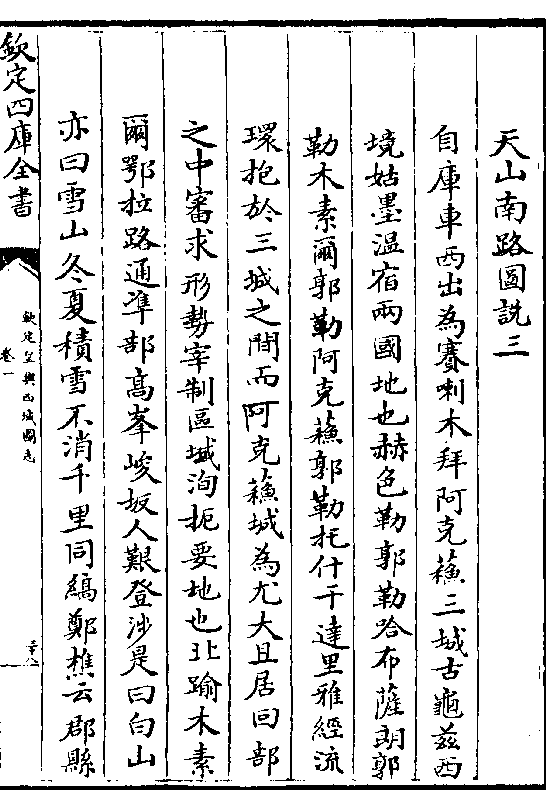 天山南路圖說三
自庫車西出為賽喇木拜阿克蘓三城古龜茲西
境姑墨溫宿兩國地也赫色勒郭勒哈布薩朗郭
勒木素爾郭勒阿克蘓郭勒托什干達里雅經流
環抱於三城之間而阿克蘓城為尤大且居回部
之中審求形勢宰制區域洵扼要地也北踰木素
爾鄂拉路通凖部髙峯峻坂人艱登涉是曰白山
亦曰雪山冬夏積雪不消千里同縞鄭樵云郡縣
欽定四庫全書
欽定皇輿西域圖志
卷一